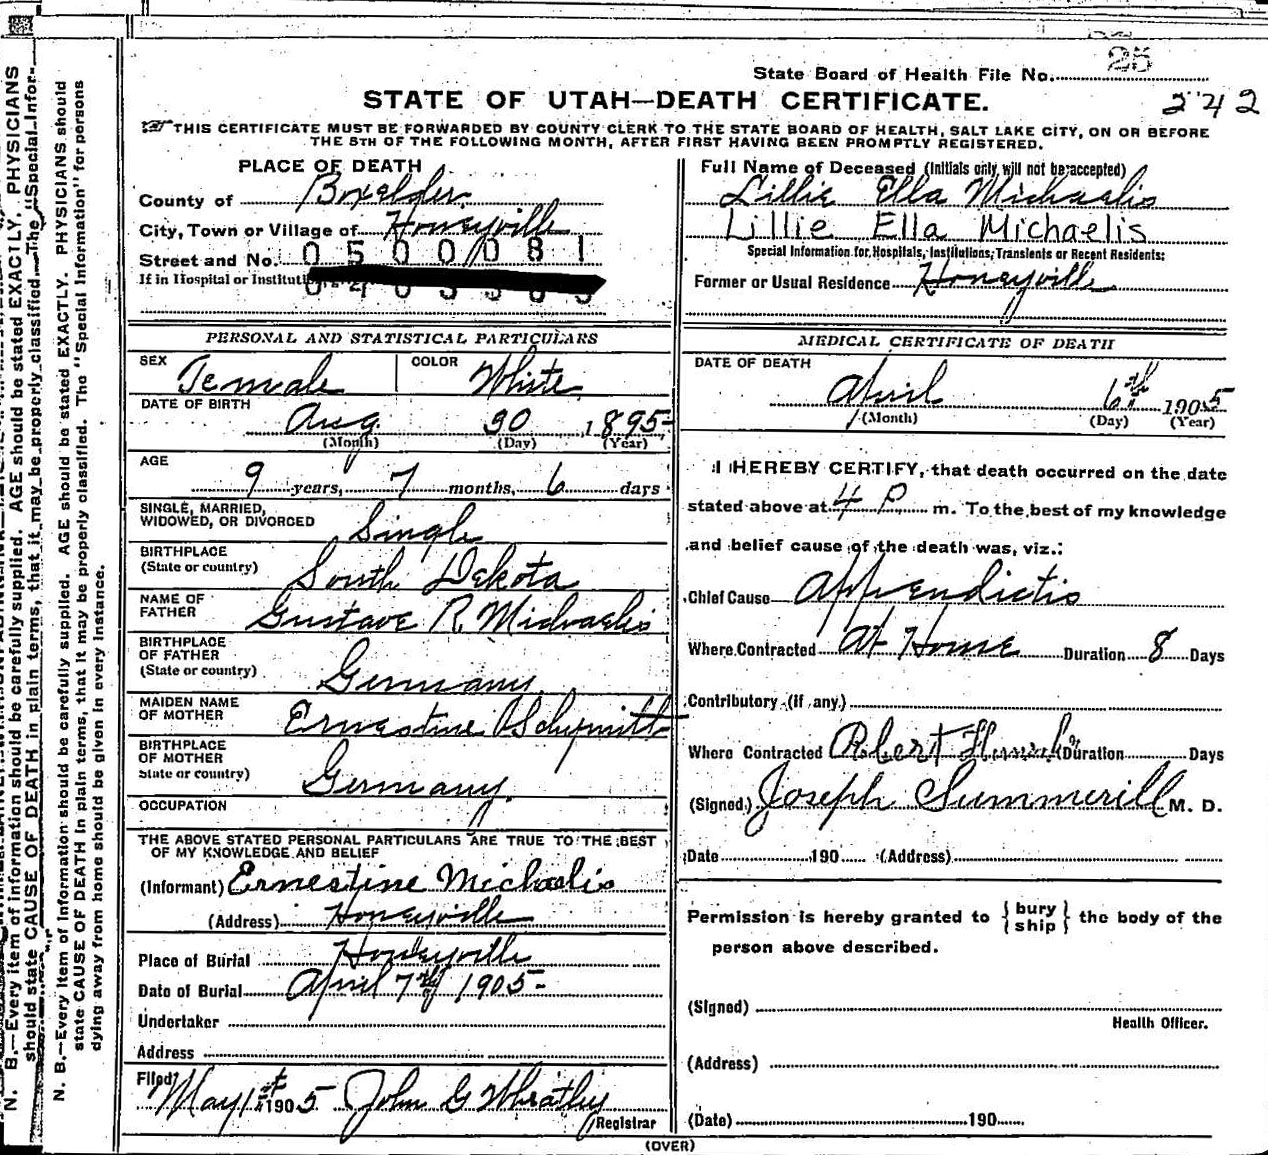 25
State Board of Health File No.
STATE OF UTAH—DEATH CERTIFICATE.
242
THIS CERTIFICATE MUST BE FORWARDED BY COUNTY CLERK TO THE STATE BOARD OF HEALTH, SALT LAKE CITY, ON OR BEFORE
THE 5TH OF THE FOLLOWING MONTH, AFTER FIRST HAVING BEEN PROMPTLY REGISTERED.
PLACE OF DEATH
County of Boxelder
City, Town or Village of Honeyville
Street and No. 0500081
If in Hospital or Instituti
Full Name of Deceased (Initials only will not be accepted)
Lillie Ella Michaelis
Lillie Ella Michaelis
Special Information for Hospitals, Institutions, Transients or Recent Residents:
Former or Usual Residence Honeyville
PERSONAL AND STATISTICAL PARTICULARS
SEX Female COLOR White
DATE OF BIRTH
Aug 30 1895
(Month) (Day) (Year)
AGE
9 years, 7 months, 6 days
SINGLE, MARRIED,
WIDOWED, OR DIVORCED Single
BIRTHPLACE
(State or country) South Dekota
NAME OF
FATHER Gustave R Michaelis
BIRTHPLACE
OF FATHER
(State or country) Germany
MAIDEN NAME
OF MOTHER Ernestine
BIRTHPLACE
OF MOTHER
State or country) Germany.
OCCUPATION
THE ABOVE STATED PERSONAL PARTICULARS ARE TRUE TO THE BEST
OF MY KNOWLEDGE AND BELIEF
(Informant) Ernestine Michaelis
(Address) Honeyville
Place of Burial Honeyville
Date of Burial April 7th 1905
Undertaker
Address
Filed May 1st 1905 John G Wheatley
Registrar
MEDICAL CERTIFICATE OF DEATH
DATE OF DEATH
April 6th 1905
(Month) (Day) (Year)
I HEREBY CERTIFY, that death occurred on the date
stated above at 4 P. m. To the best of my knowledge
and belief cause of the death was, viz.:
Chief Cause Appendictis
Where Contracted At Home Duration 8 Days
Contributory (if any)
Where Contracted Robert Duration Days
(Signed) Joseph Summerill M. D.
Date 190 (Address)
Permission is hereby granted to { bury
ship } the body of the
person above described.
(Signed)
Health Officer.
(Address)
(Date) 190
(OVER)
N. B.—Every item of information should be carefully supplied. AGE should be stated EXACTLY. PHYSICIANS should
state CAUSE OF DEATH in plain terms, that it may be properly classified. The "Special Information" for persons
dying away from home should be given in every instance.
N. B.—Every item of information should be carefully supplied. AGE should be stated EXACTLY. PHYSICIANS
should state CAUSE OF DEATH in plain terms, that it may be properly classified. The "Special Infor-